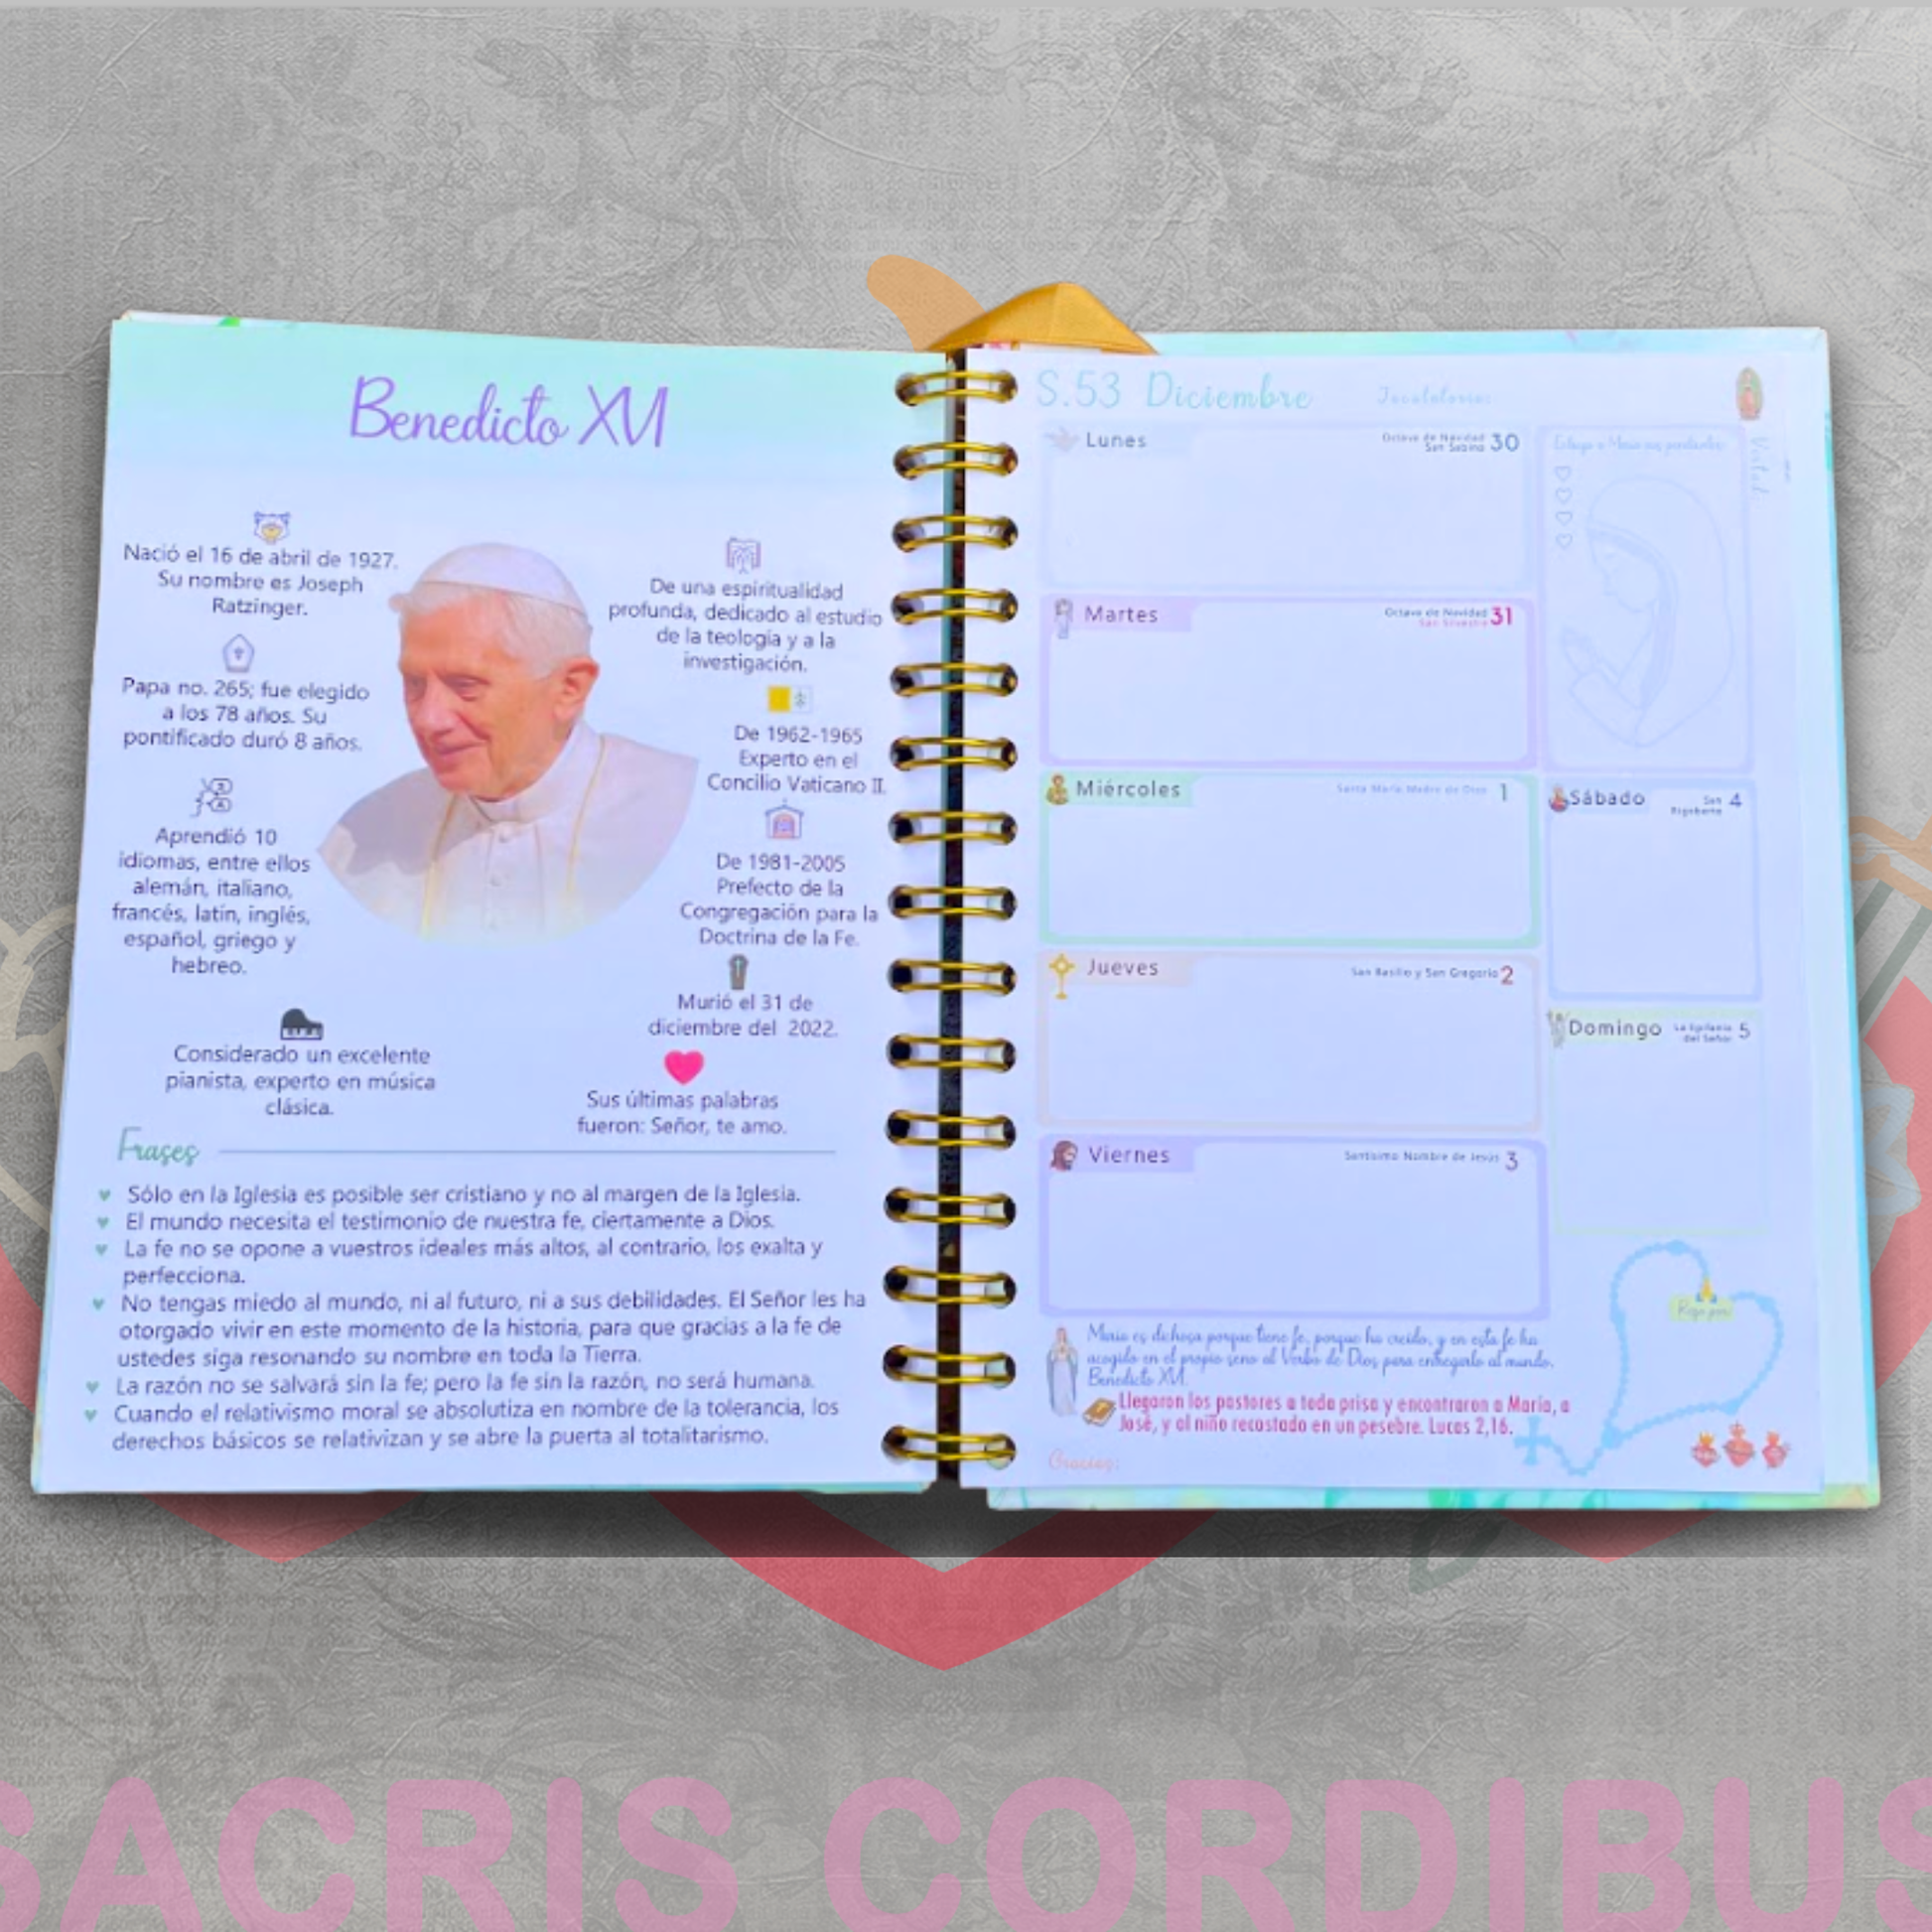 Benedicto XVI
Nació el 16 de abril de 1927.
Su nombre es Joseph
Ratzinger.
Papa no. 265; fue elegido
a los 78 años. Su
pontificado duró 8 años.
Aprendió 10
idiomas, entre ellos
alemán, italiano,
francés, latín, inglés,
español, griego y
hebreo.
Considerado un excelente
pianista, experto en música
clásica.
De una espiritualidad
profunda, dedicado al estudio
de la teología y a la
investigación.
De 1962-1965
Experto en el
Concilio Vaticano II.
De 1981-2005
Prefecto de la
Congregación para la
Doctrina de la Fe.
Murió el 31 de
diciembre del 2022.
Sus últimas palabras
fueron: Señor, te amo.
Frases
Sólo en la Iglesia es posible ser cristiano y no al margen de la Iglesia.
El mundo necesita el testimonio de nuestra fe, ciertamente a Dios.
La fe no se opone a vuestros ideales más altos, al contrario, los exalta y
perfecciona.
No tengas miedo al mundo, ni al futuro, ni a sus debilidades. El Señor les ha
otorgado vivir en este momento de la historia, para que gracias a la fe de
ustedes siga resonando su nombre en toda la Tierra.
La razón no se salvará sin la fe; pero la fe sin la razón, no será humana.
Cuando el relativismo moral se absolutiza en nombre de la tolerancia, los
derechos básicos se relativizan y se abre la puerta al totalitarismo.
S.53 Diciembre
Jaculatoria:
Lunes
Octava de Navidad
San Sabino
30
Martes
Octava de Navidad
San Silvestre
31
Miércoles
Santa María Madre de Dios 1
Jueves
San Basilio y San Gregorio 2
Viernes
Santísimo Nombre de Jesús 3
Sábado
San
Rigoberto
4
Domingo
La Epifanía
del Señor
5
María es dichosa porque tiene fe, porque ha creído, y en esta fe ha
acogido en el propio seno al Verbo de Dios para entregarlo al mundo.
Benedicto XVI.
Llegaron los pastores a toda prisa y encontraron a María, a
José, y al niño recostado en un pesebre. Lucas 2,16.
Gracias:
Ruega por:
SACRIS CORDIBUS